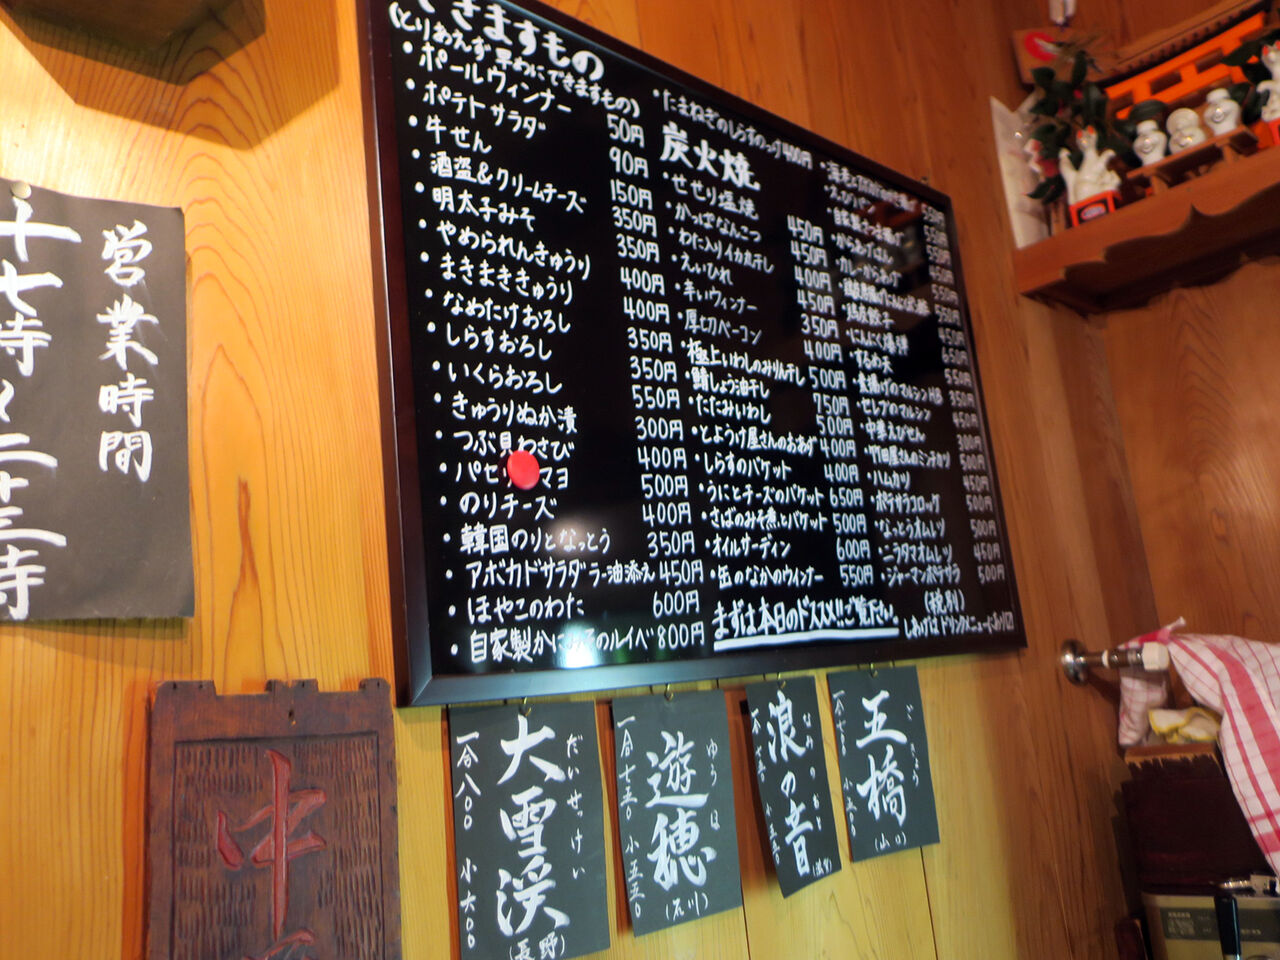 営業時間
できますもの
(とりあえず早めにできますもの)
・ポールウィンナー 50円
・ポテトサラダ 90円
・牛せん 150円
・酒盗&クリームチーズ 350円
・明太子みそ 350円
・やめられんきゅうり 400円
・まきまききゅうり 400円
・なめたけおろし 350円
・しらすおろし 350円
・いくらおろし 550円
・きゅうりぬか漬 300円
・つぶ貝わさび 400円
・パセリ マヨ 500円
・のりチーズ 400円
・韓国のりとなっとう 350円
・アボカドサラダラー油添え 450円
・ほやこのわた 600円
・自家製かにみそのルイベ 800円
・たまねぎのしらすのっけ 400円
炭火焼
・せせり塩焼 450円
・かっぱなんこつ 450円
・わた入りイカ丸干し 400円
・えいひれ 450円
・辛いウィンナー 350円
・厚切ベーコン 400円
・極上いわしのみりん干し 500円
・鯖しょう油干し 750円
・たたみいわし 500円
・とようけ屋さんのおあげ 400円
・しらすのバケット 400円
・うにとチーズのバケット 650円
・さばのみそ煮とバケット 500円
・オイルサーディン 600円
・缶のなかのウインナー 550円
まずは本日のオススメ!!ご覧下さい。
・からあげ
・カレーからあげ
・餃子
・にんにく爆弾
・するめ天
・セレブのマルシン
・中華えびせん
・竹田屋さんのミンチカツ
・ハムカツ
・ポテサラコロッケ
・なっとうオムレツ 500円
・ニラタマオムレツ 450円
・ジャーマンポテサラ 500円
(税別)
しあげはドリンクメニューにあり
大雪渓
だいせっけい
一合八〇〇 小六〇〇
(長野)
遊穂
ゆうほ
一合七五〇 小五五〇
(石川)
浪の音
なみのおと
(滋賀)
五橋
ごきょう
(山口)
中